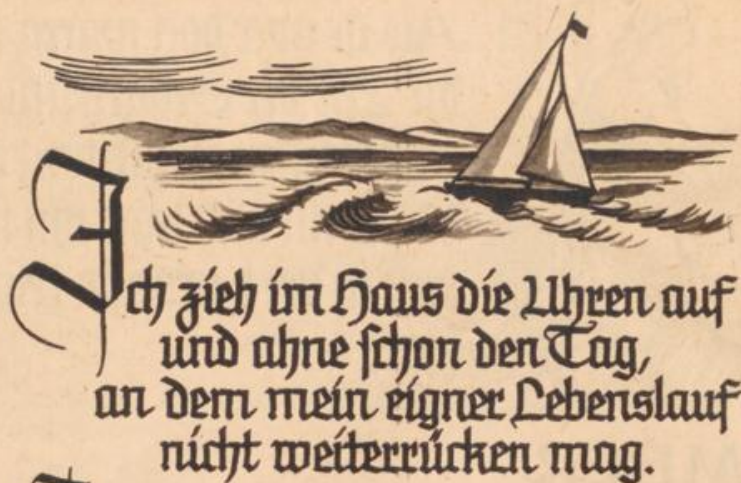 Ich zieh im Haus die Uhren auf
und ahne schon den Tag,
an dem mein eigner Lebenslauf
nicht weiterrücken mag.